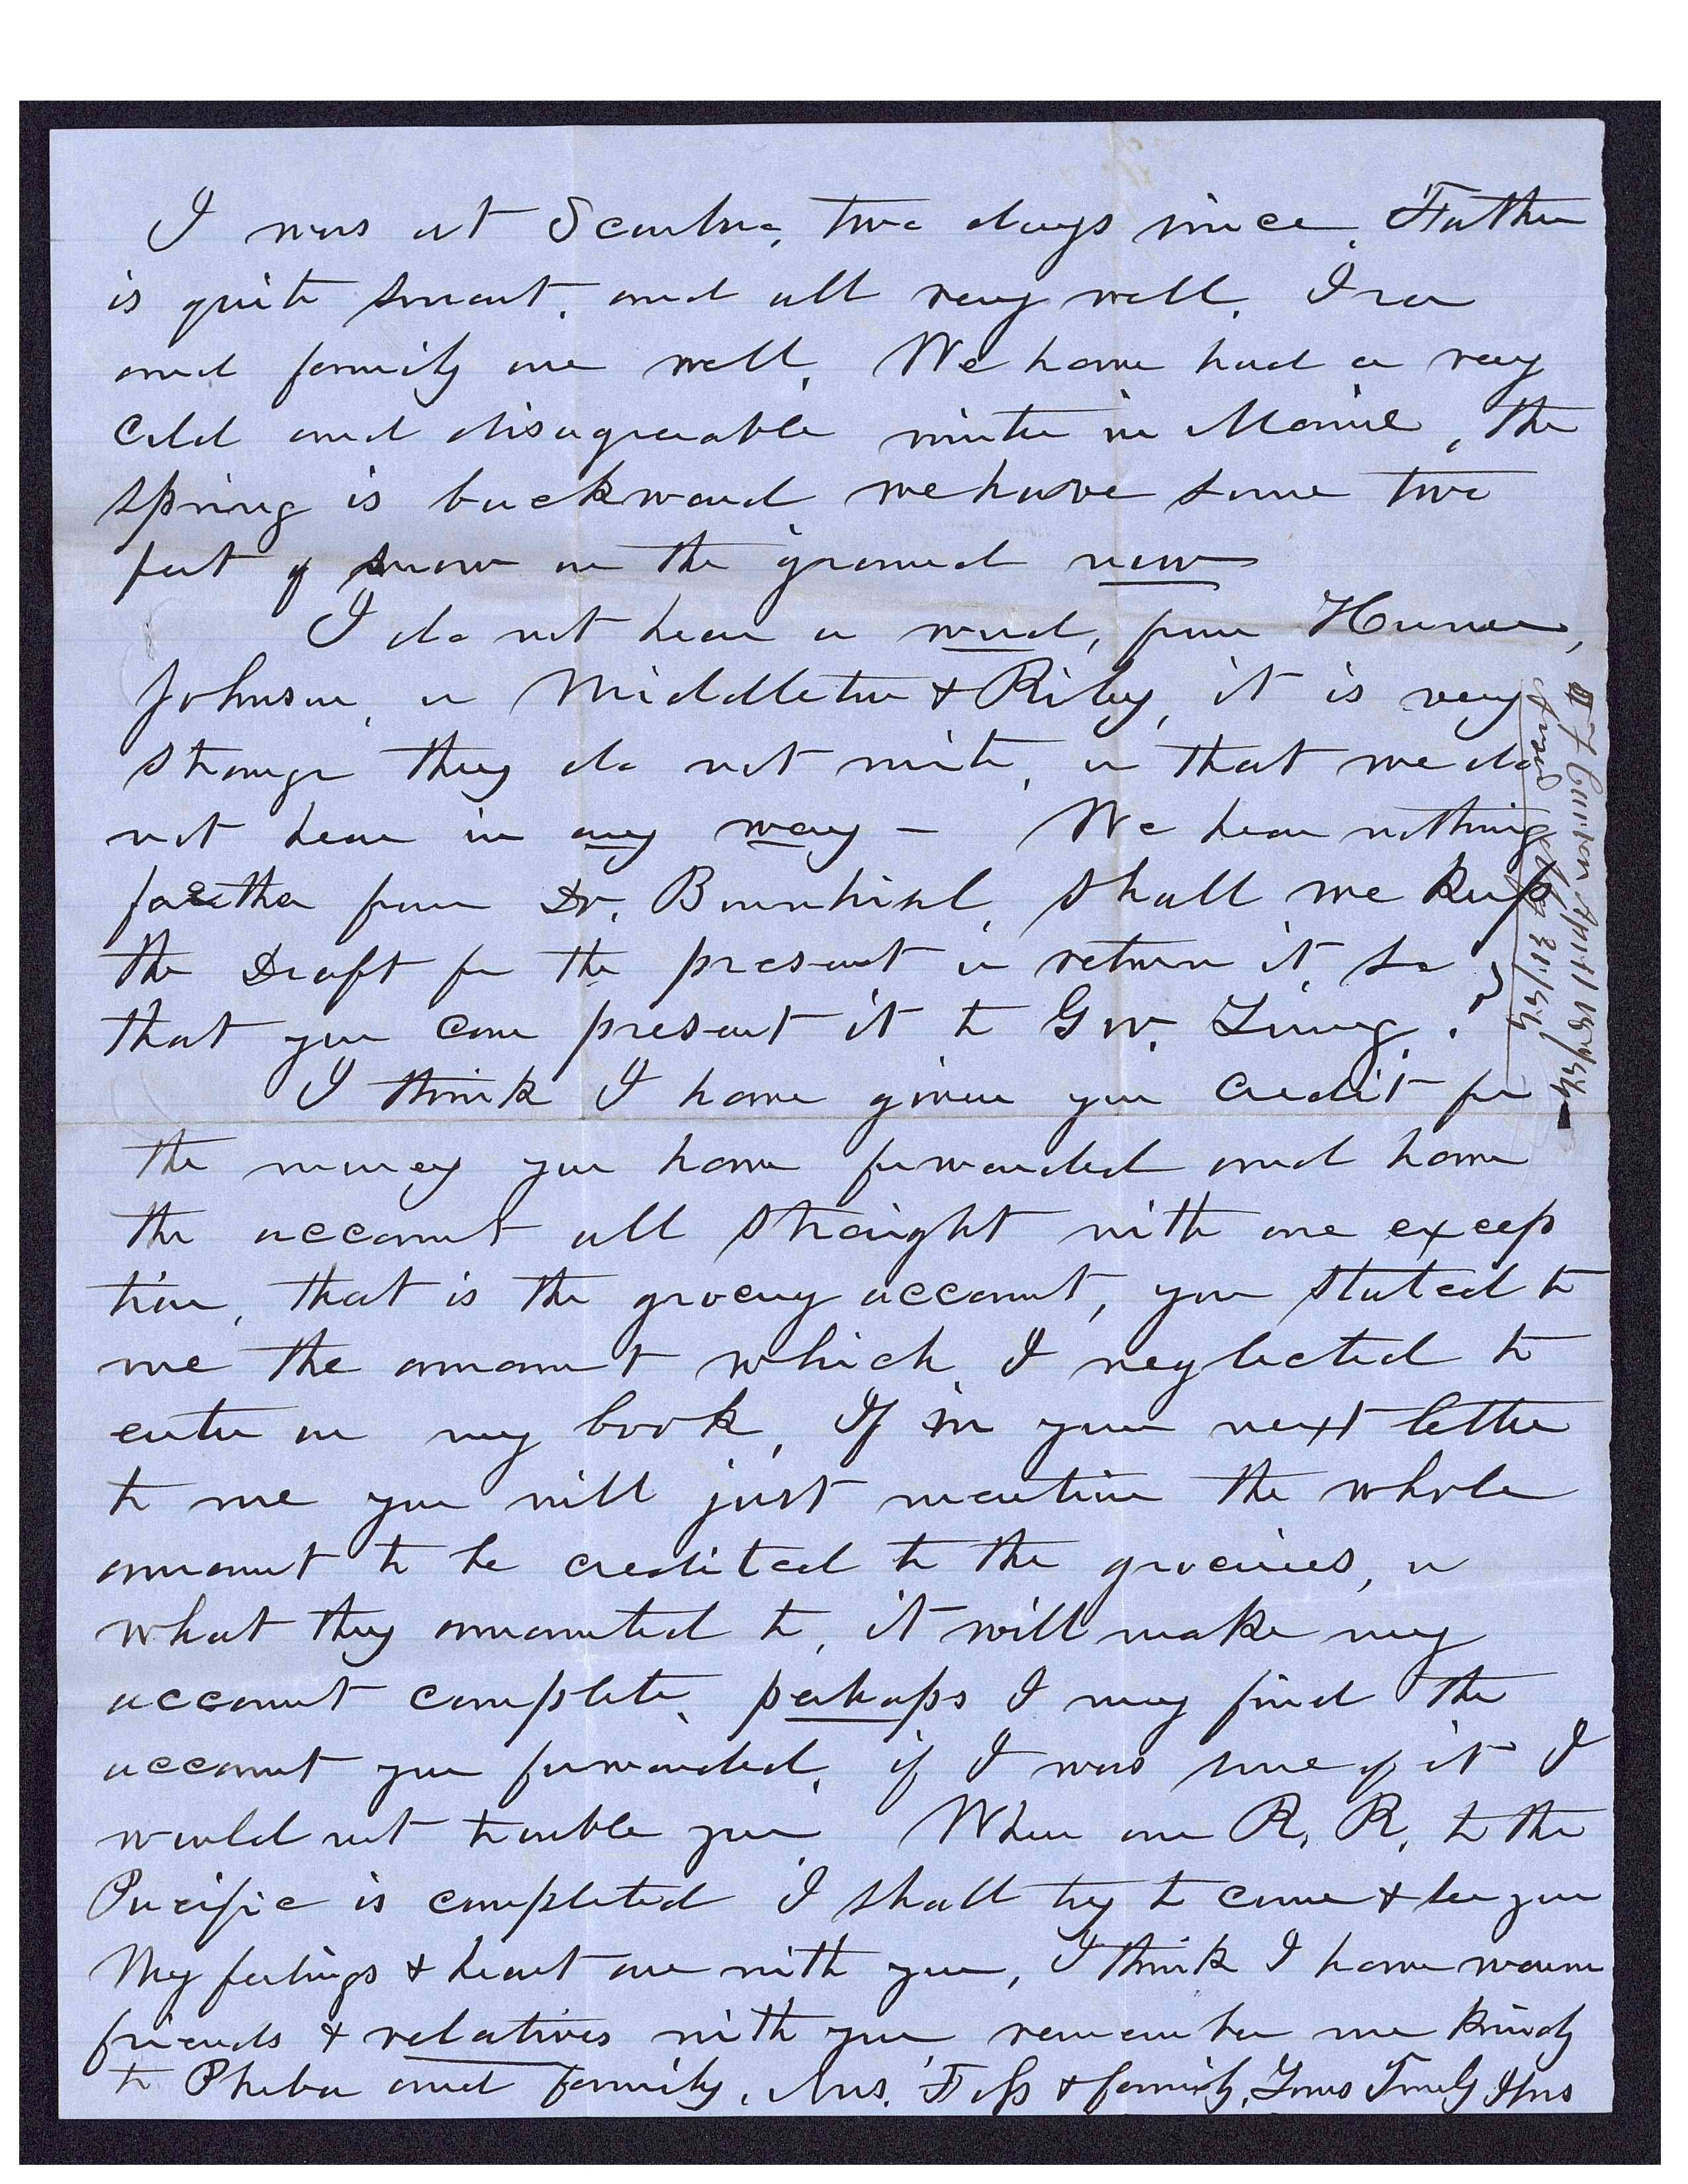 I was at Scarboro, two days since. Father
is quite smart, and all very well. Ira
and family are well. We have had a very
cold and disagreeable winter in Maine, the
spring is backward we have some two
feet of snow on the ground now
I do not hear a word, from Hunter,
Johnson, or Middleton & Riley, it is very
strange they do not write, or that we do
not hear in any way — We hear nothing
farther from Dr. Bernhisel, shall we keep
the Draft for the present or return it, so
that you can present it to Gov. Young.?
I think I have given you credit for
the money you have forwarded and have
the account all straight with one excep
tion, that is the grocery account, you stated to
me the amount which I neglected to
enter on my book, If in your next letter
to me you will just mention the whole
amount to be credited to the groceries, or
what they amounted to, it will make my
account complete, perhaps I may find the
account you forwarded, if I was sure of it I
would not trouble you. When our R, R, to the
Pacific is completed I shall try to come & see you
My feelings & heart are with you, I think I have warm
friends & relatives with you, remember me kindly
to Pheba and family, Mrs. Foss & family, Yours Truly
April 18